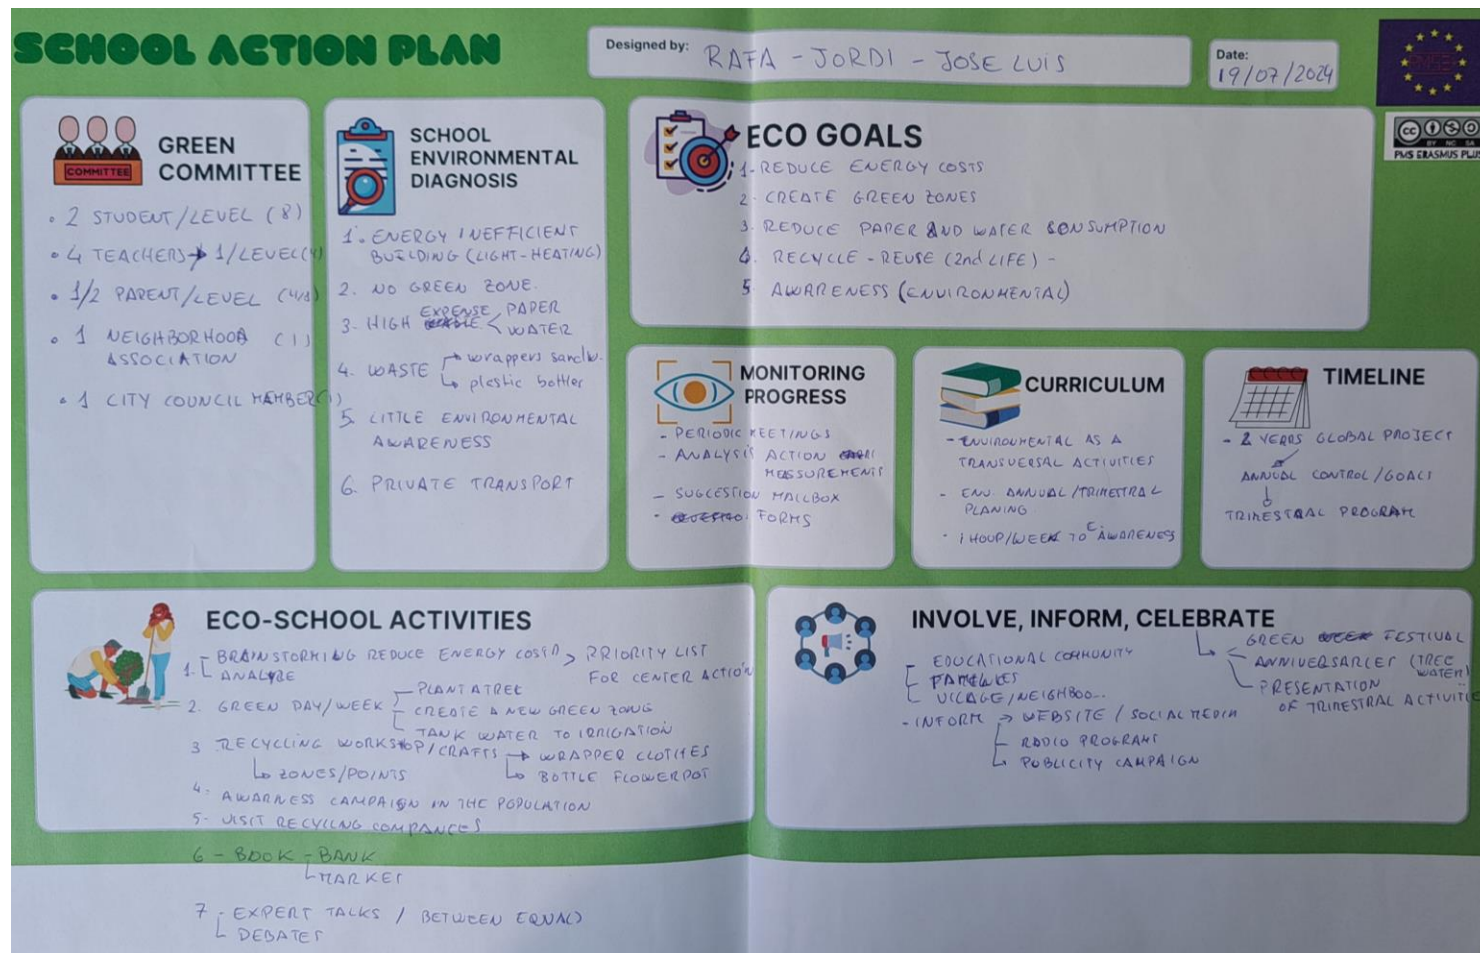 SCHOOL ACTION PLAN
Designed by: RAFA - JORDI - JOSE LUIS
Date: 19/07/2024
CC BY NC SA
PMS ERASMUS PLUS
COMMITTEE
GREEN
COMMITTEE
• 2 STUDENT/LEVEL (8)
• 4 TEACHERS → 1/LEVEL (4)
• 1/2 PARENT/LEVEL (4/8)
• 1 NEIGHBORHOOD (1)
ASSOCIATION
• 1 CITY COUNCIL MAMBER (1)
SCHOOL
ENVIRONMENTAL
DIAGNOSIS
1. ENERGY INEFFICIENT
BUILDING (LIGHT-HEATING)
2. NO GREEN ZONE.
3. HIGH EXPENSE PAPER
WATER
4. WASTE wrappers sandw.
plestic bottler
5. LITTLE ENVIRONMENTAL
AWARENESS
6. PRIVATE TRANSPORT
ECO GOALS
1- REDUCE ENERGY COSTS
2- CREATE GREEN ZONES
3. REDUCE PAPER AND WATER CONSUMPTION
4. RECYCLE - REUSE (2nd LIFE) -
5. AWARENESS (ENVIRONMENTAL)
MONITORING
PROGRESS
- PERIODIC MEETINGS
- ANALYSIS ACTION
MESSUREMENTS
- SUGGESTION MAILBOX
- FORMS
CURRICULUM
- ENVIRONMENTAL AS A
TRANSVERSAL ACTIVITIES
- ENV. ANNUAL/TRIMESTRAL
PLANING.
- 1 HOUR/WEEK TO E. AWARENESS
TIMELINE
- 2 YEARS GLOBAL PROJECT
ANNUAL CONTROL/GOALS
TRIMESTRAL PROGRAM
ECO-SCHOOL ACTIVITIES
1. BRAINSTORMING REDUCE ENERGY COSTS > PRIORITY LIST
ANALYRE FOR CENTER ACTION
2. GREEN DAY/WEEK PLANT A TREE
CREATE A NEW GREEN ZONG
TANK WATER TO IRRIGATION
3 RECYCLING WORKSHOP/CRAFTS → WRAPPER CLOTHES
ZONES/POINTS BOTTLE FLOWERPOT
4- AWARNESS CAMPAIGN IN THE POPULATION
5- VISIT RECYLING COMPANCES
6 - BOOK - BANK
MARKET
7 - EXPERT TALKS / BETWEEN EQUALS
DEBATES
INVOLVE, INFORM, CELEBRATE
EDUCATIONAL COMMUNITY
FAMILIES
VILLAGE/NEIGHBOO...
- INFORM → WEBSITE / SOCIAL MEDIA
RADIO PROGRAMS
PUBLICITY CAMPAIGN
GREEN FESTIVAL
ANNIVERSARIES (TREE
WATER)
PRESENTATION
OF TRIMESTRAL ACTIVITIE